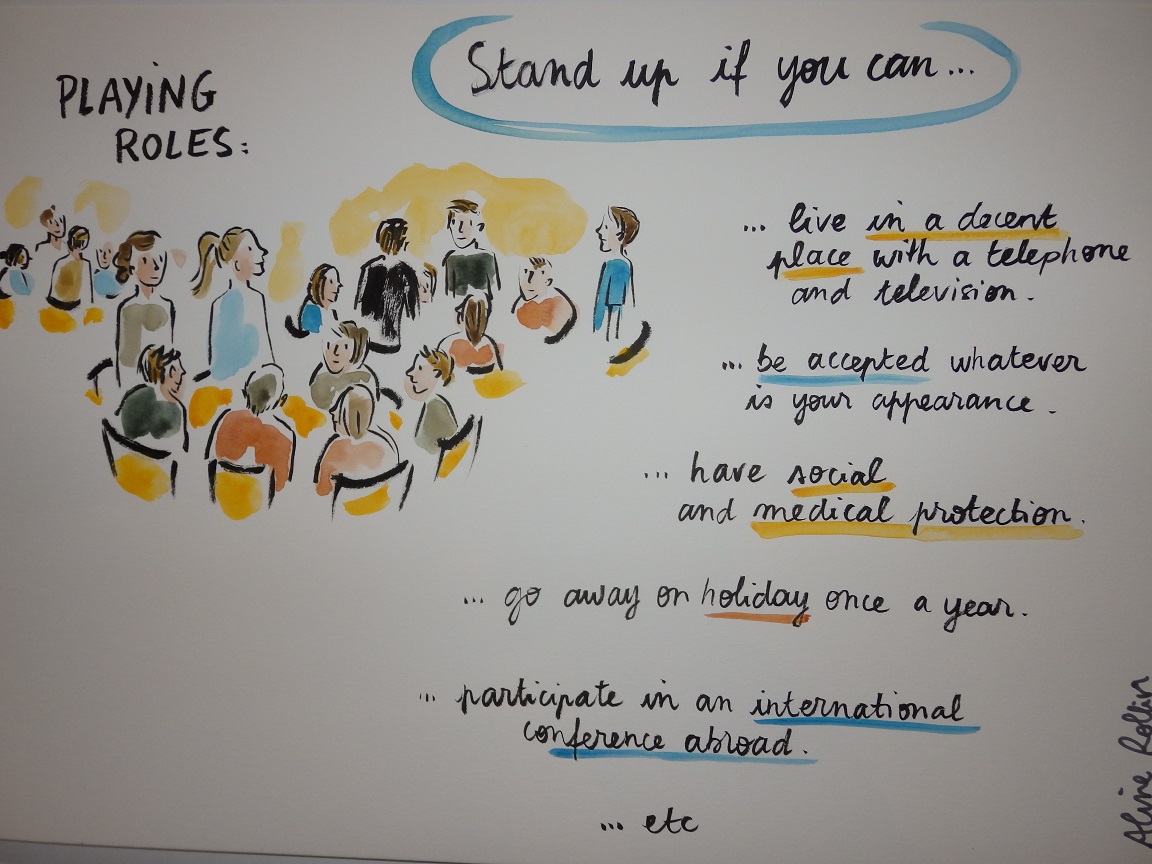 PLAYING
ROLES:
Stand up if you can...
... live in a decent
place with a telephone
and television.
... be accepted whatever
is your appearance.
... have social
and medical protection.
... go away on holiday once a year.
... participate in an international
conference abroad.
... etc
Aline Rollin